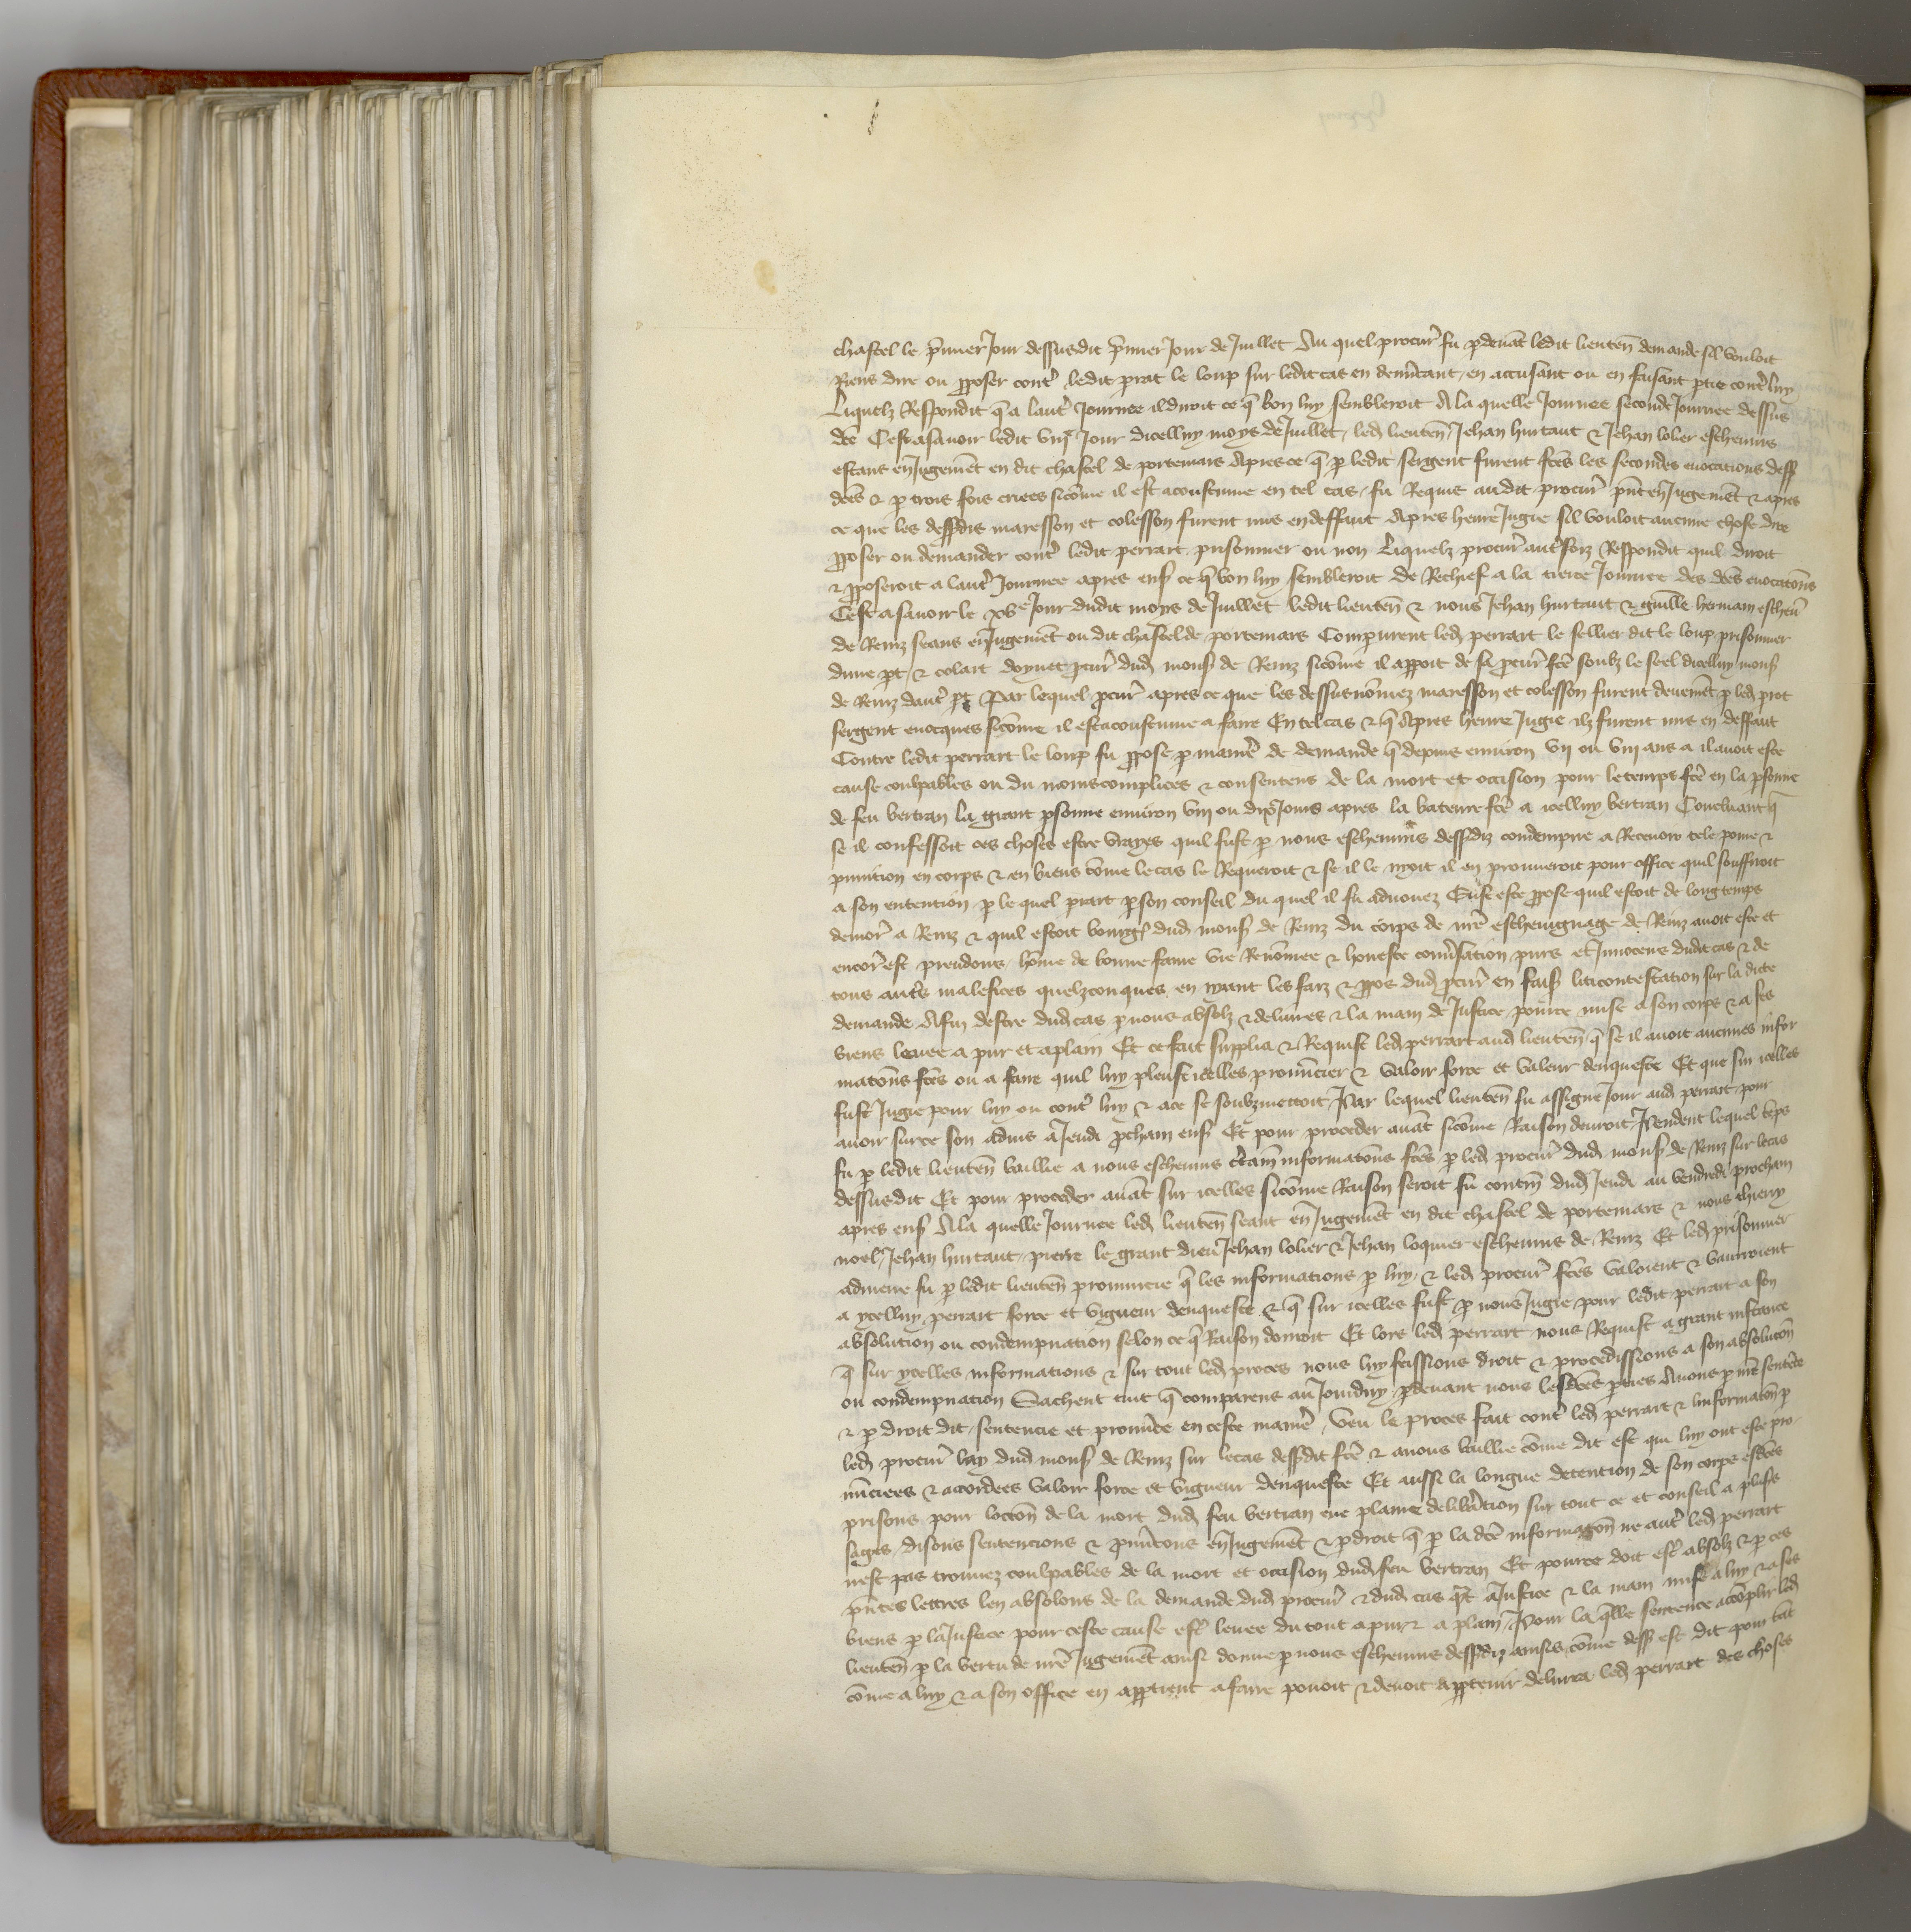 chastel le p̃mier Jour dessusdit p̃mier Jour de Juillet Au quel procur̃ fu p deuãt ledit lieuteñ demande sil vouloit
Riens dire ou pposer cont̾ ledit prat le loup sur ledit cas en denũcant, en accusant ou en faisant ptie cont̾ luy
Liquelz Respondit q̃ a laut̾ Journee il diroit ce q̃ bon luy sembleroit A la quelle Journee seconde Journee dessus
dc̃e Cest asauoir ledit viije Jour dicelluy moys de Juillet, led lieuteñ, Jehan hurtaut & Jehan lolier escheuins
estans en Jugemẽt en dit chastel de portemars Apres ce q̃ p ledit sergent furent fc̃es les secondes euocations dess
dc̃es & p trois fois criees sicõme il est acoustume en tel cas, fu Requis audit procur̃ pñt en Jugemẽt & apres
ce que les dessdis maresson et colesson furent mis en deffaut Apres heure Jugie sil vouloit aucune chose dire
pposer ou demander cont̾ ledit perrart prisonnier ou non Liquelz procur̃ aut̾foiz Respondit quil diroit
& pposeroit a laut̾ Journee apres ens ce q̃ bon luy sembleroit De Rechief a la tierce Journee des dc̃es euocatiõns
Cest asauoir le xve Jour dudit moys de Juillet ledit lieuteñ & nous Jehan hurtaut & guille hermam escheũ
de Reinz seans en Jugemẽt ou dit chastel de portemars Compurent led perrart le sellier dit le loup prisonnier
dune pt, & colart doynet pcur̃ dud mons de Reinz sicõme il appoit de sa pcur̃ fc̃e soubz le seel dicelluy mons
de Reinz daut̾ pt Par lequel pcur̃ apres ce que les dessusnõmez maresson et colesson furent deuemẽt p led prot
sergent euocques sicõme il est acoustume a faire En tel cas & q̃ Apres heure Jugie ilz furent mis en deffaut
Contre ledit perrart le loup fu ppose p manie̾ de demande q̃ depuis enuiron vij ou viij ans a il auoit este
cause coulpables ou du moins complices & consentens de la mort et occision pour le temps fc̃e en la psonne
de feu vertran la grant psonne enuiron viij ou dix Jours apres la bateure fc̃e a icelluy vertran Concluant q̃
se il confessoit ces choses estre vrayes quil fust p nous escheuins dessdiz condempne a Receuoir tele poine &
punition en corps & en biens cõme le cas le Requeroit & se il le nyoit il en prouueroit pour office quil souffiroit
a son entention p le quel prart p son conseil du quel il fu aduouez Eust este ppose quil estoit de long temps
demor̃ a Reinz & quil estoit bourgs dud mons de Reinz du corps de nr̃e escheuignage de Reinz auoit este et
encor̃ est preudons, hõme de bonne fame vie Renõmee & honeste conu̾sation purs et Innocens dudit cas & de
tous aut̾s malefices quelzconques en nyant les faiz & ppos dud pcur̃ en fais liticontestation sur la dicte
demande Afin destre dud cas p nous absolz & deliures & la main de Justice pource mise a son corps & a ses
biens leuee a pur et a plain Et ce fait supplia & Requist led perrart aud lieuteñ q̃ se il auoit aucunes infor
matiõns fc̃es ou a faire quil luy pleust icelles pronũcier & valoir force et valeur denqueste Et que sur icelles
fust Jugie pour luy ou cont̾ luy & a ce se soubzmettoit, Par lequel lieuteñ fu assigne Jour aud perrart pour
auoir sur ce son aduis a Jeudi pcham ens Et pour proceder auãt sicõme Raison deuroit, Pendent lequel tẽps
fu p ledit lieuteñ baillie a nous escheuins c̾tain̾ informatiõns fc̃es p led procur̃ dud mons de Reinz sur le cas
dessusdit Et pour proceder auãt sur icelles sicõme Raison seroit fu contiñ dud Jeudi au vendredi procham
apres ens A la quelle Journee led lieuteñ seant en Jugemẽt en dit chastel de portemars & nous thierry
noel, Jehan hurtaut, pierre le grant dieu Jehan lolier & Jehan loquier escheuins de Reinz Et led prisonnier
admene fu p ledit lieuteñ pronuncie q̃ les informations p luy & led procur̃ fc̃es valoient & vauroient
a ycelluy perrart force et vigueur denqueste & q̃ sur icelles fust p nous Jugie pour ledit perrart a son
absolution ou condempnation selon ce q̃ Raison donroit Et lors led perrart nous Requist a grant instance
q̃ sur ycelles informations & sur tout led proces nous luy feissions droit & procedissions a son absolutiõn
ou condempnation Sachent tuit q̃ comparens au Jourduy pdeuant nous lesdc̃es pties Auons p nr̃e sentẽce
& p droit dit, sentencie et pronũce en ceste manie̾, Veu le proces fait cont̾ led perrart & linformatiõn p
led procur̃ lay dud mons de Reinz sur le cas dessdit fc̃e & a nous baillie cõme dit est qui luy ont este pro,
nũciees & acordees valoir force et vigueur denqueste Et aussi la longue detention de son corps esdc̃es
prisons pour loccõn de la mort dud feu vertran eue plaine delib̾ation sur tout ce et conseil a plusrs
sages, disons sentencions & pnũcons en Jugemẽt & p droit q̃ p la dc̃e informatiõn ne aut̾ led perrart
nest pas trouuez coulpables de la mort et occision dud feu vertran Et pource doit est̾ absolz & p ces
pñtes lettres len absolons de la demande dud procur̃ & dud cas q̃t a Justice & la main mise a luy & a ses
biens p la Justice pour ceste cause est̾ leuee du tout a pur & a plain, Pour la q̃lle sentence acõplir led
lieuteñ p la vertu de nr̃e Jugemẽt ainsi donne p nous escheuins dessdiz ainsi cõme dess est dit pour tãt
cõme a luy & a son office en apptient a faire pouoit & deuoit apptenir deliura led perrart des choses